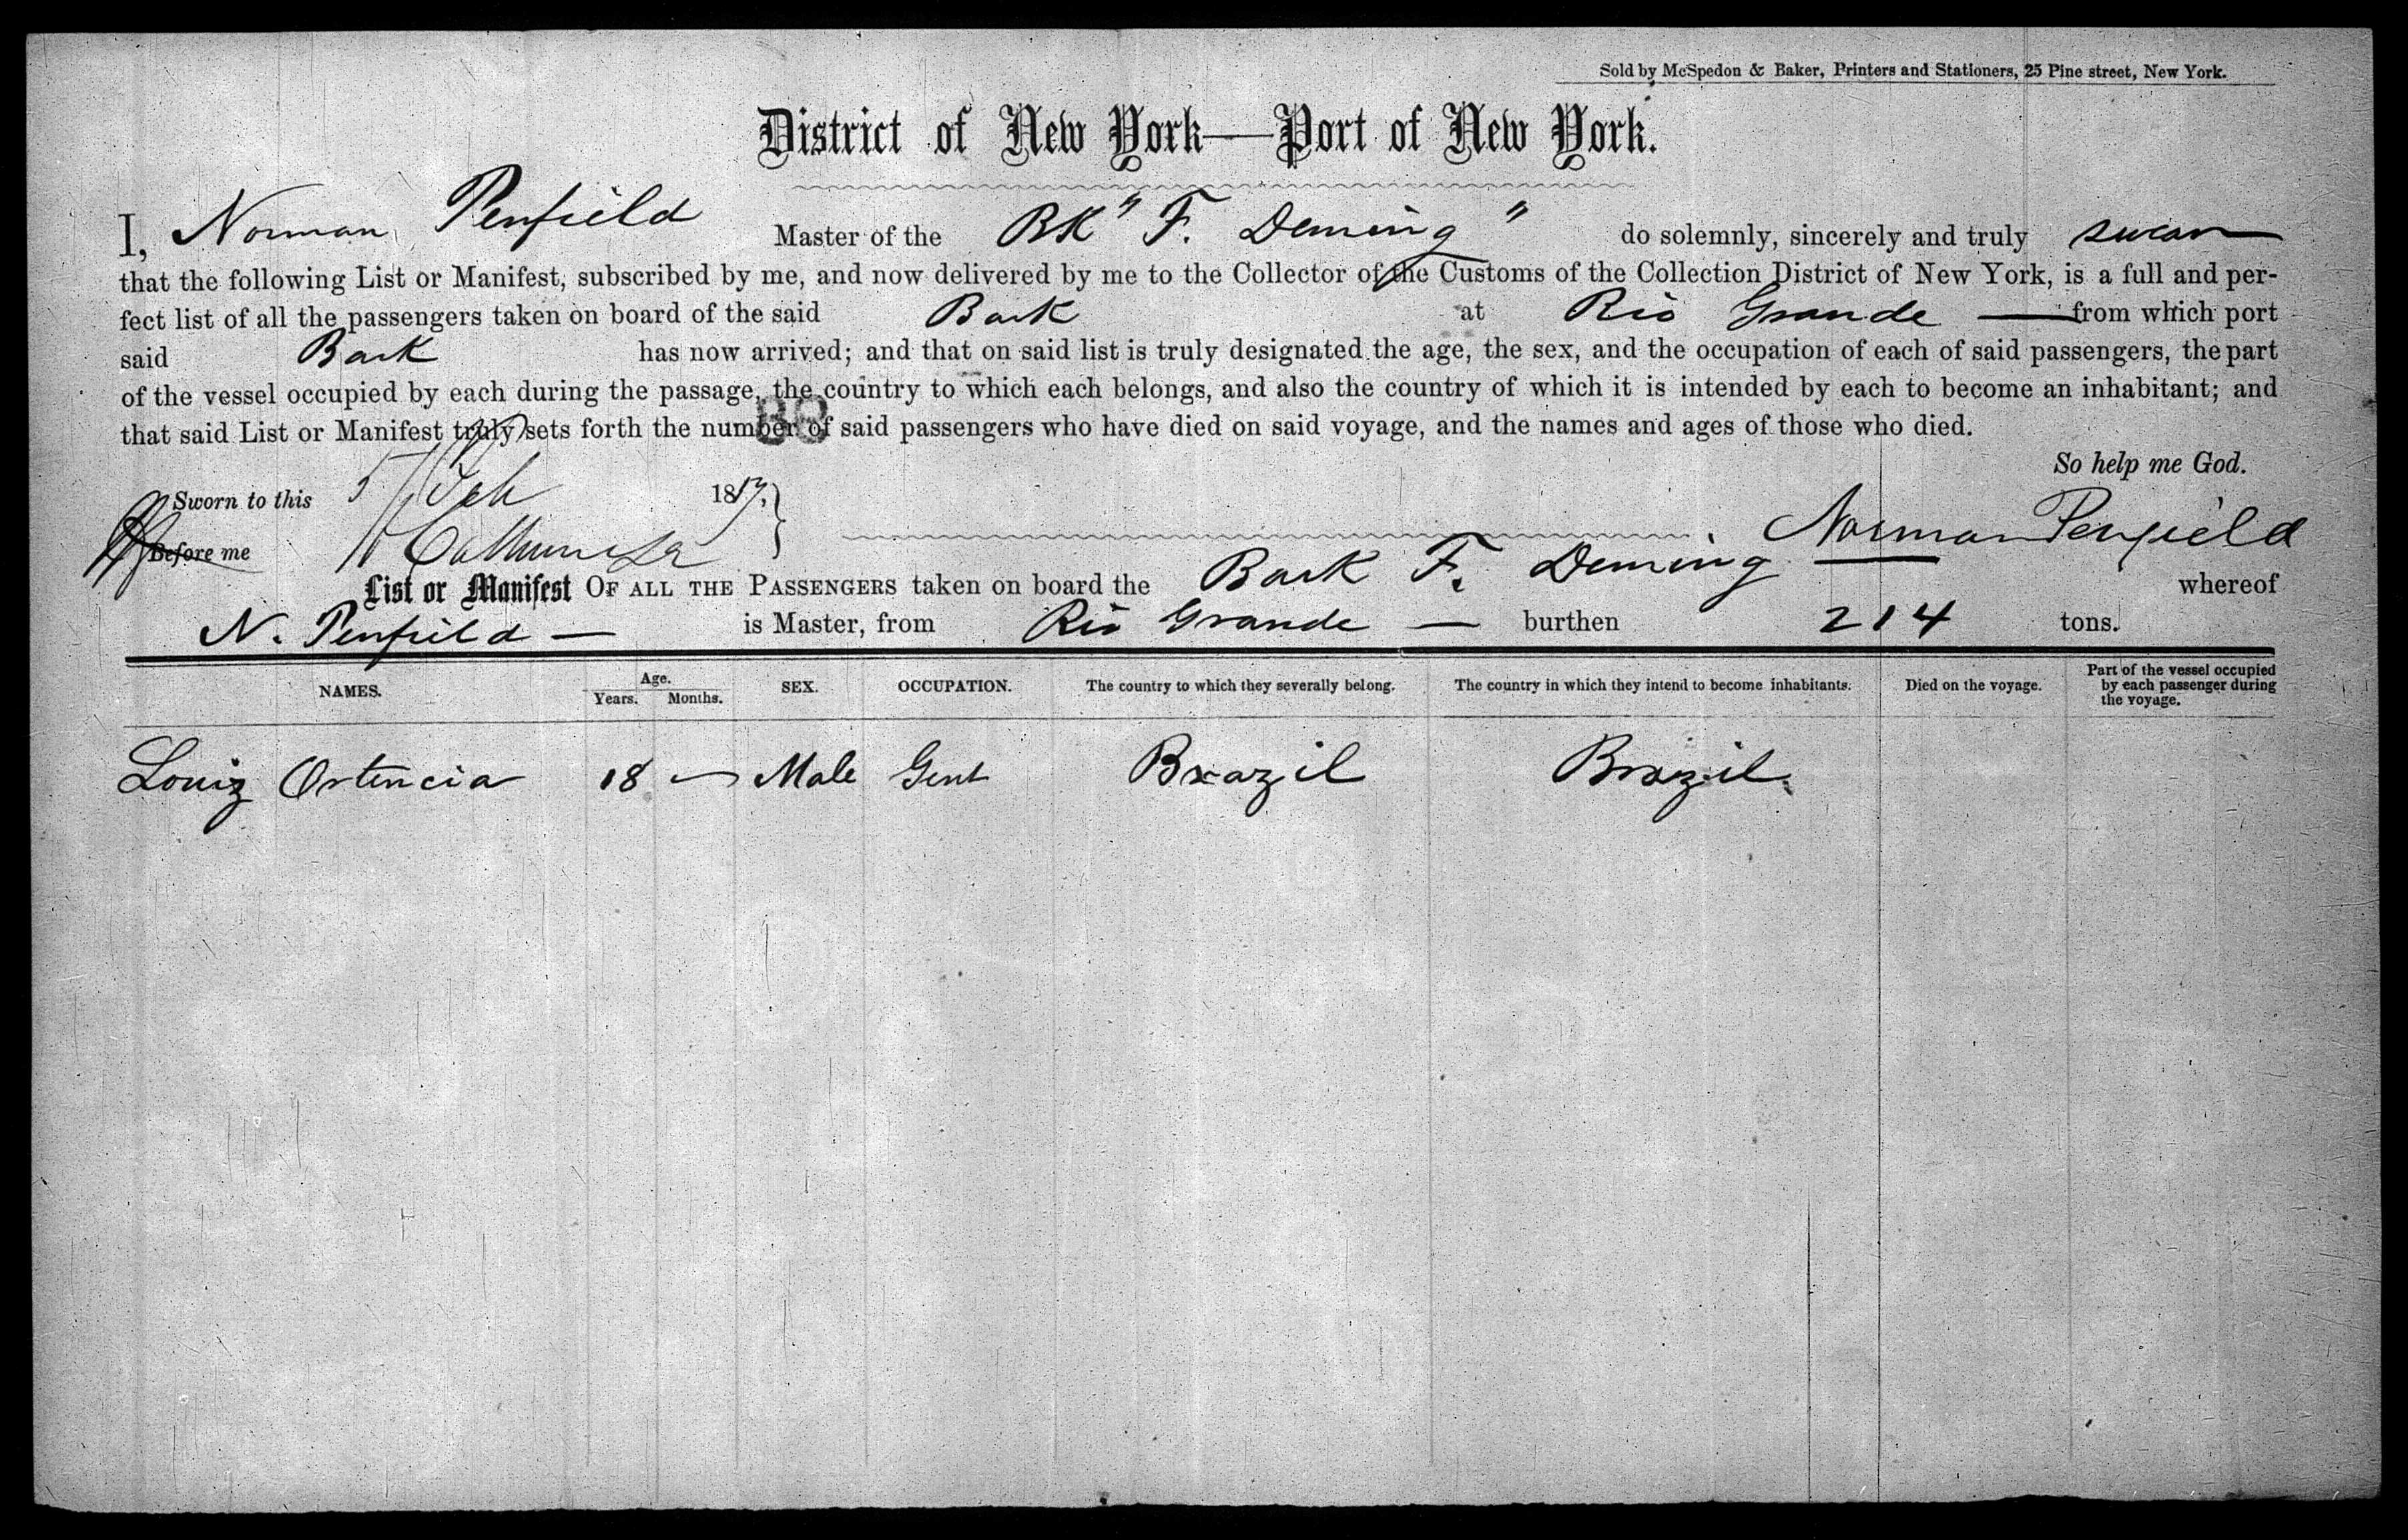 Sold by McSpedon & Baker, Printers and Stationers, 25 Pine street, New York.
District of New York—Port of New York.
I, Norman Penfield Master of the BK " F. Deming " do solemnly, sincerely and truly swear
that the following List or Manifest, subscribed by me, and now delivered by me to the Collector of the Customs of the Collection District of New York, is a full and per-
fect list of all the passengers taken on board of the said Bark at Rio Grande — from which port
said Bark has now arrived; and that on said list is truly designated the age, the sex, and the occupation of each of said passengers, the part
of the vessel occupied by each during the passage, the country to which each belongs, and also the country of which it is intended by each to become an inhabitant; and
that said List or Manifest truly sets forth the number of said passengers who have died on said voyage, and the names and ages of those who died.
So help me God.
Sworn to this 5 Feb 1857.
Before me
Norman Penfield
List or Manifest OF ALL THE PASSENGERS taken on board the Bark F. Deming — whereof
N. Penfield — is Master, from Rio Grande — burthen 214 tons.
NAMES. Age. Years. Months. SEX. OCCUPATION. The country to which they severally belong. The country in which they intend to become inhabitants. Died on the voyage. Part of the vessel occupied by each passenger during the voyage.
Louiz Ortencia 18 — Male Gent Brazil Brazil.